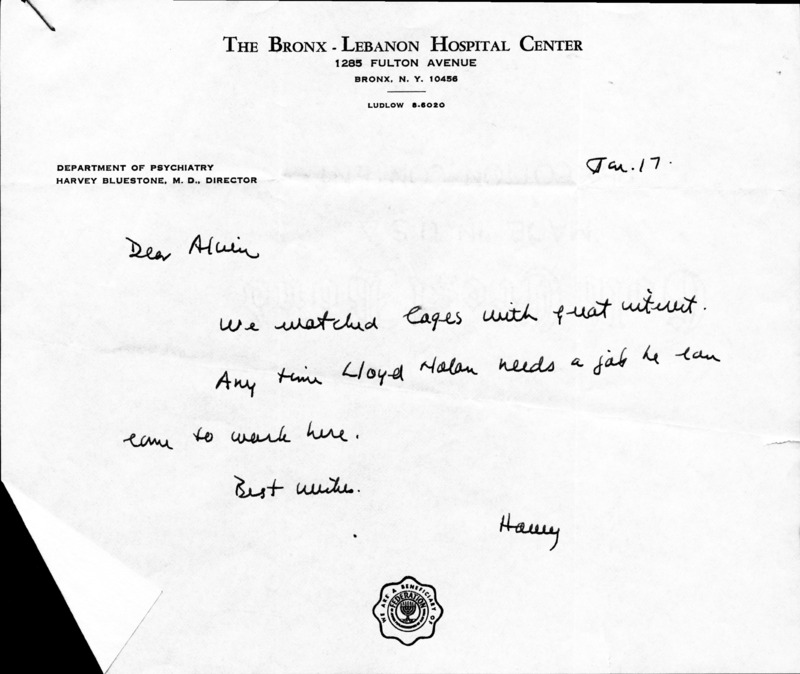 THE BRONX - LEBANON HOSPITAL CENTER
1285 FULTON AVENUE
BRONX, N. Y. 10456
LUDLOW 8-6020
DEPARTMENT OF PSYCHIATRY
HARVEY BLUESTONE, M. D., DIRECTOR
Jan. 17.
Dear Alvin
We watched Cages with great interest.
Any time Lloyd Nolan needs a job he can
come to work here.
Best wishes.
Harvey
WE ARE A BENEFICIARY OF
FEDERATION